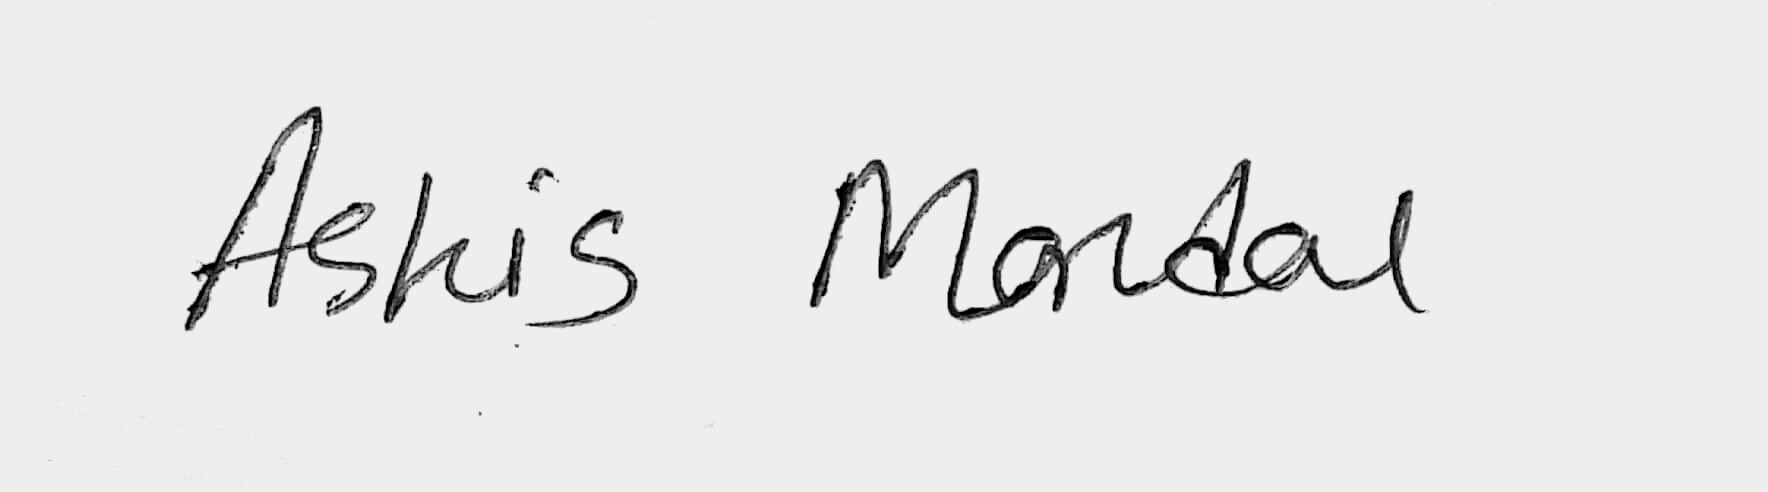 Ashis Mondal